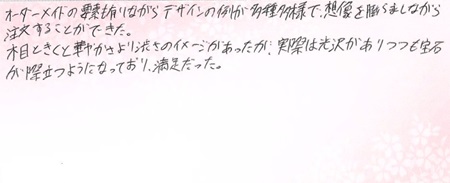 オーダーメイドの要素も有りながらデザインの例が多種多様で、想像を膨らましながら
注文することができた。
木目ときくと華やかさより渋さのイメージがあったが、実際は光沢がありつつも宝石
が際立つようになっており、満足だった。